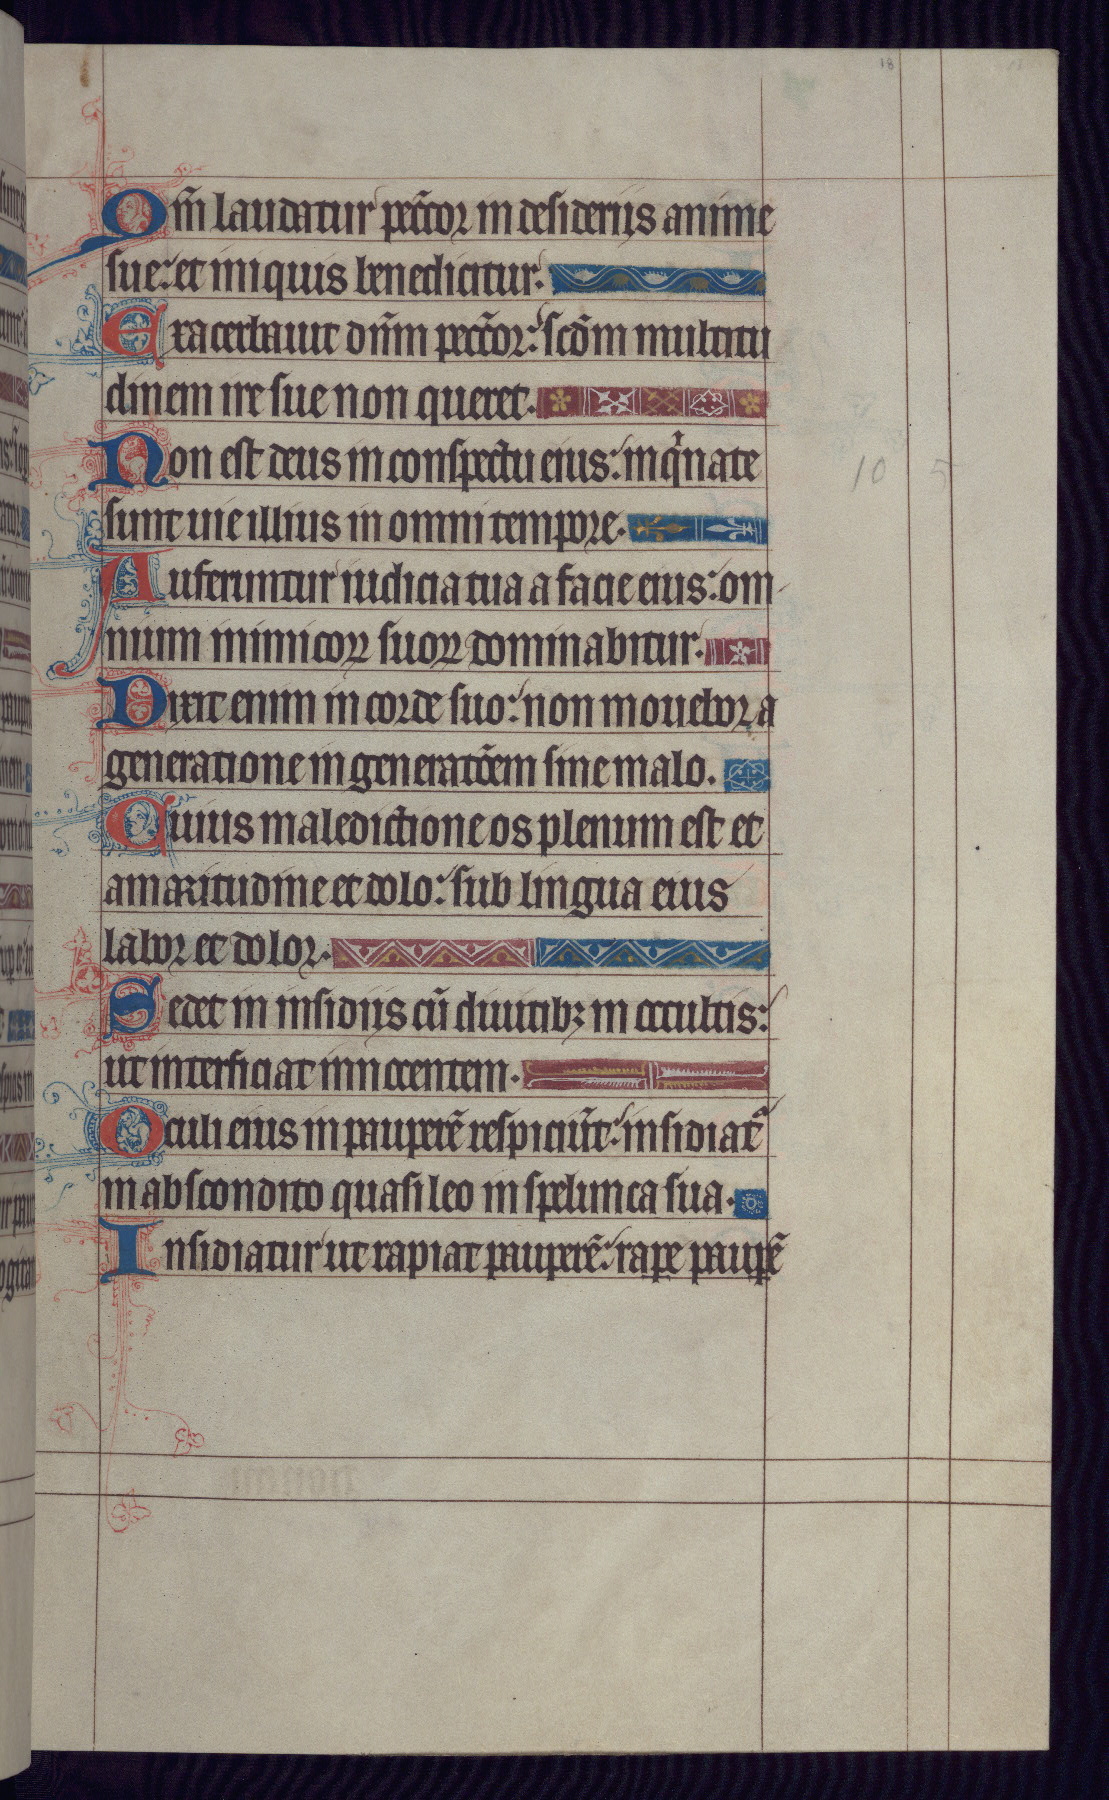 18
Qm̄ laudatur pecc̄or in desiderijs anime
sue: et iniquis benedicitur.
Exacerbauit dn̄m pecc̄or: scd̄m multitu
dinem ire sue non queret.
Non est deus in conspectu eius: inqⁱnate
sunt uie illius in omni tempore.
Auferuntur iudicia tua a facie eius: om
nium inimicoꝝ suoꝝ dominabitur.
Dixit enim in corde suo: non mouebor a
generatione in generatōem sine malo.
Cuius maledictione os plenum est et
amaritudine et dolo: sub lingua eius
labor et dolor.
Sedet in insidijs cū diuitibꝫ in occultis:
ut interficiat innocentem.
Oculi eius in pauperē respiciūt: insidiatᷣ
in abscondito quasi leo in spelunca sua.
Insidiatur ut rapiat pauperē: rape paupē
10 5